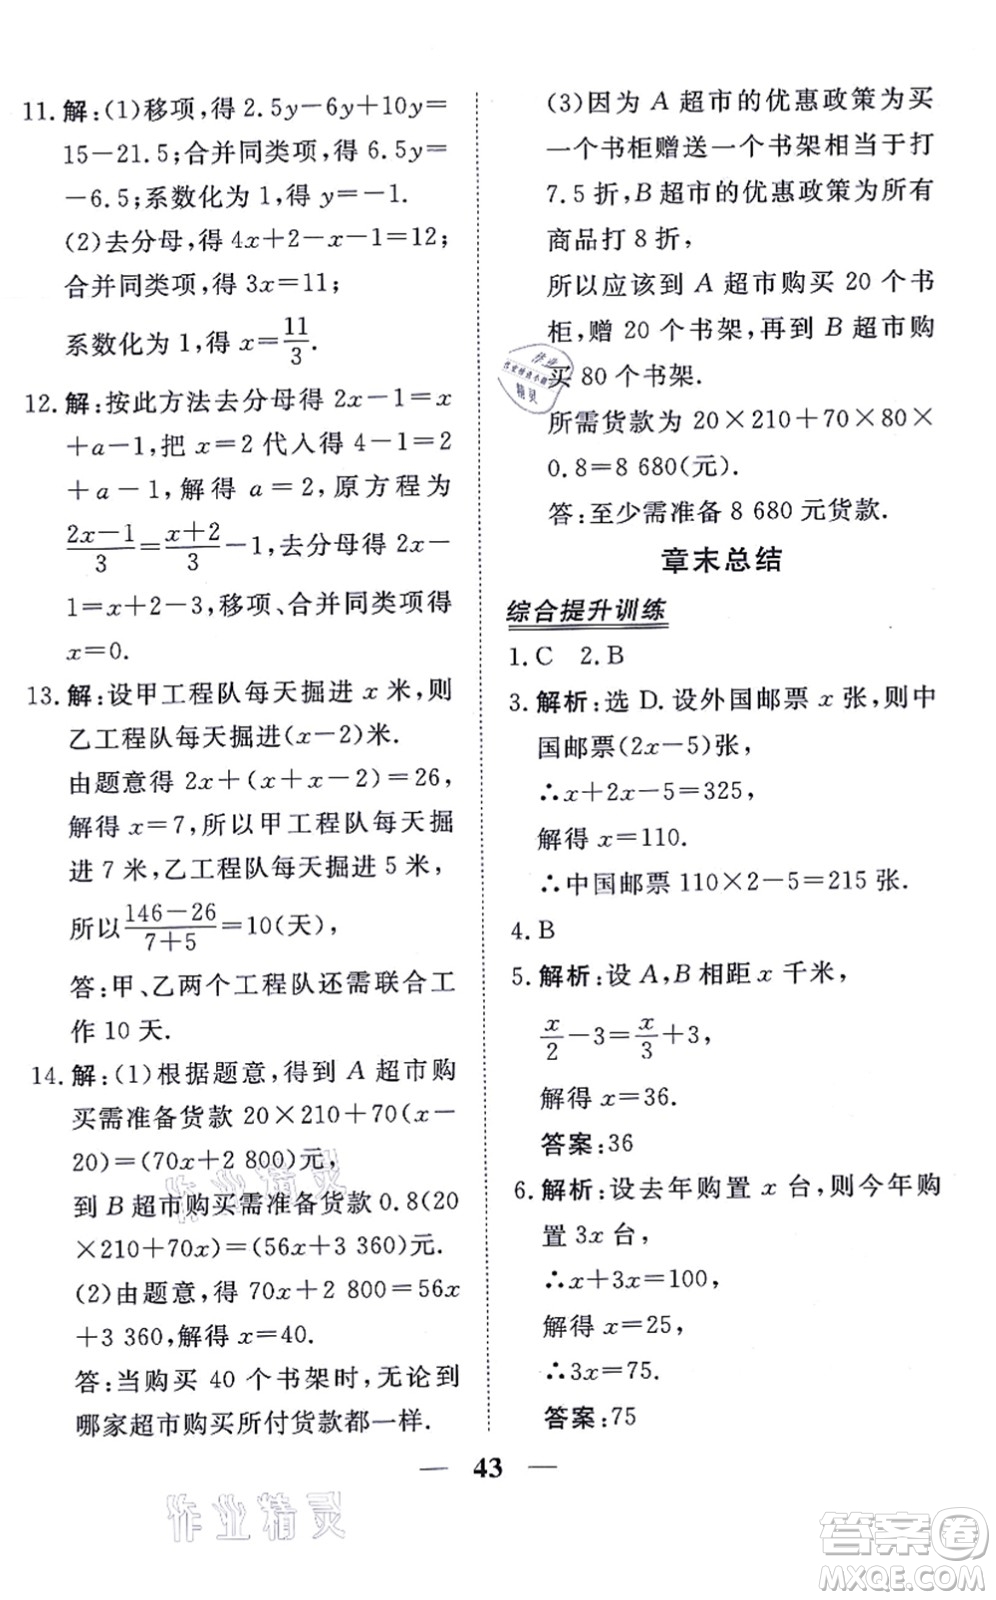 11. 解:(1)移项,得 2.5y-6y+10y=
15-21.5;合并同类项,得 6.5y=
-6.5;系数化为 1,得 y=-1.
(2)去分母,得 4x+2-x-1=12;
合并同类项,得 3x=11;
系数化为 1,得 x=11/3.
12. 解:按此方法去分母得 2x-1=x
+a-1,把 x=2 代入得 4-1=2
+a-1,解得 a=2,原方程为
(2x-1)/3=(x+2)/3-1,去分母得 2x-
1=x+2-3,移项、合并同类项得
x=0.
13. 解:设甲工程队每天掘进 x 米,则
乙工程队每天掘进(x-2)米.
由题意得 2x+(x+x-2)=26,
解得 x=7,所以甲工程队每天掘
进 7 米,乙工程队每天掘进 5 米,
所以(146-26)/(7+5)=10(天),
答:甲、乙两个工程队还需联合工
作 10 天.
14. 解:(1)根据题意,得到 A 超市购
买需准备货款 20×210+70(x-
20)=(70x+2 800)元,
到 B 超市购买需准备货款 0.8(20
×210+70x)=(56x+3 360)元.
(2)由题意,得 70x+2 800=56x
+3 360,解得 x=40.
答:当购买 40 个书架时,无论到
哪家超市购买所付货款都一样.
(3)因为 A 超市的优惠政策为买
一个书柜赠送一个书架相当于打
7.5 折,B 超市的优惠政策为所有
商品打 8 折,
所以应该到 A 超市购买 20 个书
柜,赠 20 个书架,再到 B 超市购
买 80 个书架.
所需货款为 20×210+70×80×
0.8=8 680(元).
答:至少需准备 8 680 元货款.
章末总结
综合提升训练
1. C 2. B
3. 解析:选 D. 设外国邮票 x 张,则中
国邮票(2x-5)张,
∴x+2x-5=325,
解得 x=110.
∴中国邮票 110×2-5=215 张.
4. B
5. 解析:设 A,B 相距 x 千米,
x/2-3=x/3+3,
解得 x=36.
答案:36
6. 解析:设去年购置 x 台,则今年购
置 3x 台,
∴x+3x=100,
解得 x=25,
∴3x=75.
答案:75
— 43 —
作业精灵
作业精灵
答案圈
MXQE.COM